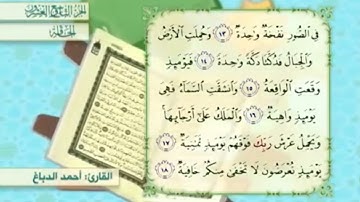 الجزء التاسع والعشرون
الحاقة
فِي الصُّورِ نَفْخَةٌ وَاحِدَةٌ ١٣ وَحُمِلَتِ الْأَرْضُ
وَالْجِبَالُ فَدُكَّتَا دَكَّةً وَاحِدَةً ١٤ فَيَوْمَئِذٍ
وَقَعَتِ الْوَاقِعَةُ ١٥ وَانشَقَّتِ السَّمَاءُ فَهِيَ
يَوْمَئِذٍ وَاهِيَةٌ ١٦ وَالْمَلَكُ عَلَىٰ أَرْجَائِهَا
وَيَحْمِلُ عَرْشَ رَبِّكَ فَوْقَهُمْ يَوْمَئِذٍ ثَمَانِيَةٌ ١٧
يَوْمَئِذٍ تُعْرَضُونَ لَا تَخْفَىٰ مِنكُمْ خَافِيَةٌ ١٨
القارئ: أحمد الدباغ